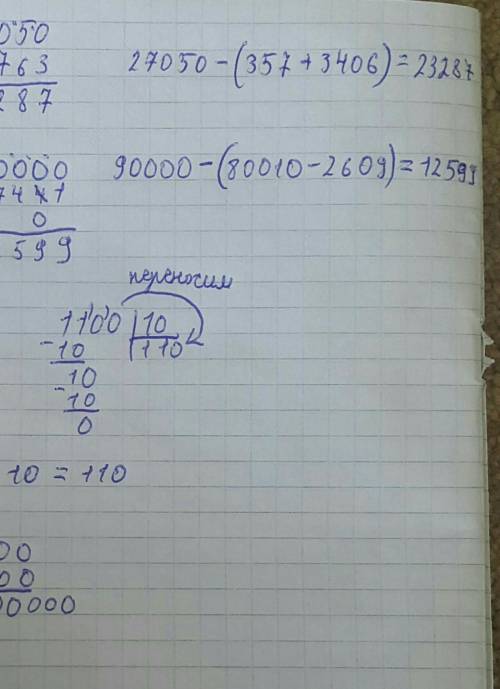 050
763
287
27050-(357+3406)=23287
0000
0
599
90000-(80010-2609)=12599
переносим
1100 | 10
-10 | 110
10
-10
0
10 = 110
00
00
00000